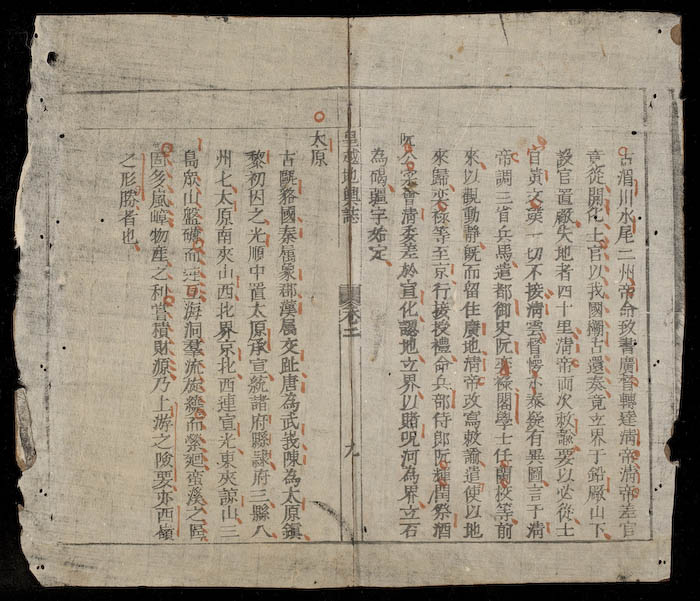 古渭川水尾二州帝命致書廣督轉達清帝清帝差官
竟從開化土官以我國瀾古還奏竟立界于鉛厰山下
設官置厰失地者四十里清帝而次敕諭要以必從土
官黃文 一切不接清雲督愕 泰疑有異圖言于清
帝調三省兵馬遣都御史阮奕祿閣學士任蘭枝等前
來以觀動靜既而留住廣地清帝改寫敕諭遣使以地
來歸奕極等至京行接授禮命兵部侍郎阮輝潤祭酒
阮公寀會清委差於宣化認地立界以賭呪河為界立石
為碣疆字始定
皇越地輿誌 卷之二 九
太原
古甌貉國秦屬象郡漢屬交趾唐為武峩陳為太原鎮
黎初因之光順中置太原承宣統諸府縣隸府三縣八
州七太原南夾山西北界京北西連宣光東夾諒山三
島眾山盤礴而迂亙海洞羣流旋繞而縈廻蛮溪之阻
固多嵐嶂物產之利嘗積財源乃上游之險要亦西嶺
之形勝者也